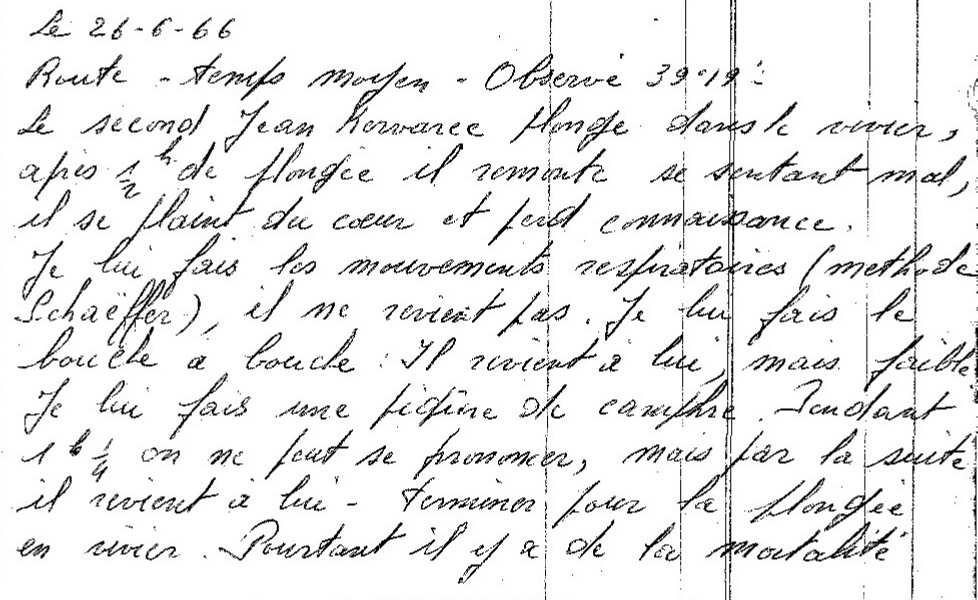 Le 26-6-66
Route - temps moyen - Observé 39°19'
Le second Jean Kervarec plonge dans le vivier,
après 1/2 h de plongée il remonte se sentant mal,
il se plaint du cœur et perd connaissance.
Je lui fais les mouvements respiratoires (methode
Schaëffer), il ne revient pas. Je lui fais le
bouche a bouche : Il revient à lui, mais faible
Je lui fais une piqûre de camphre. Pendant
1 h 1/4 on ne peut se prononcer, mais par la suite
il revient à lui - terminer pour la plongée
en vivier. Pourtant il y a de la mortalité